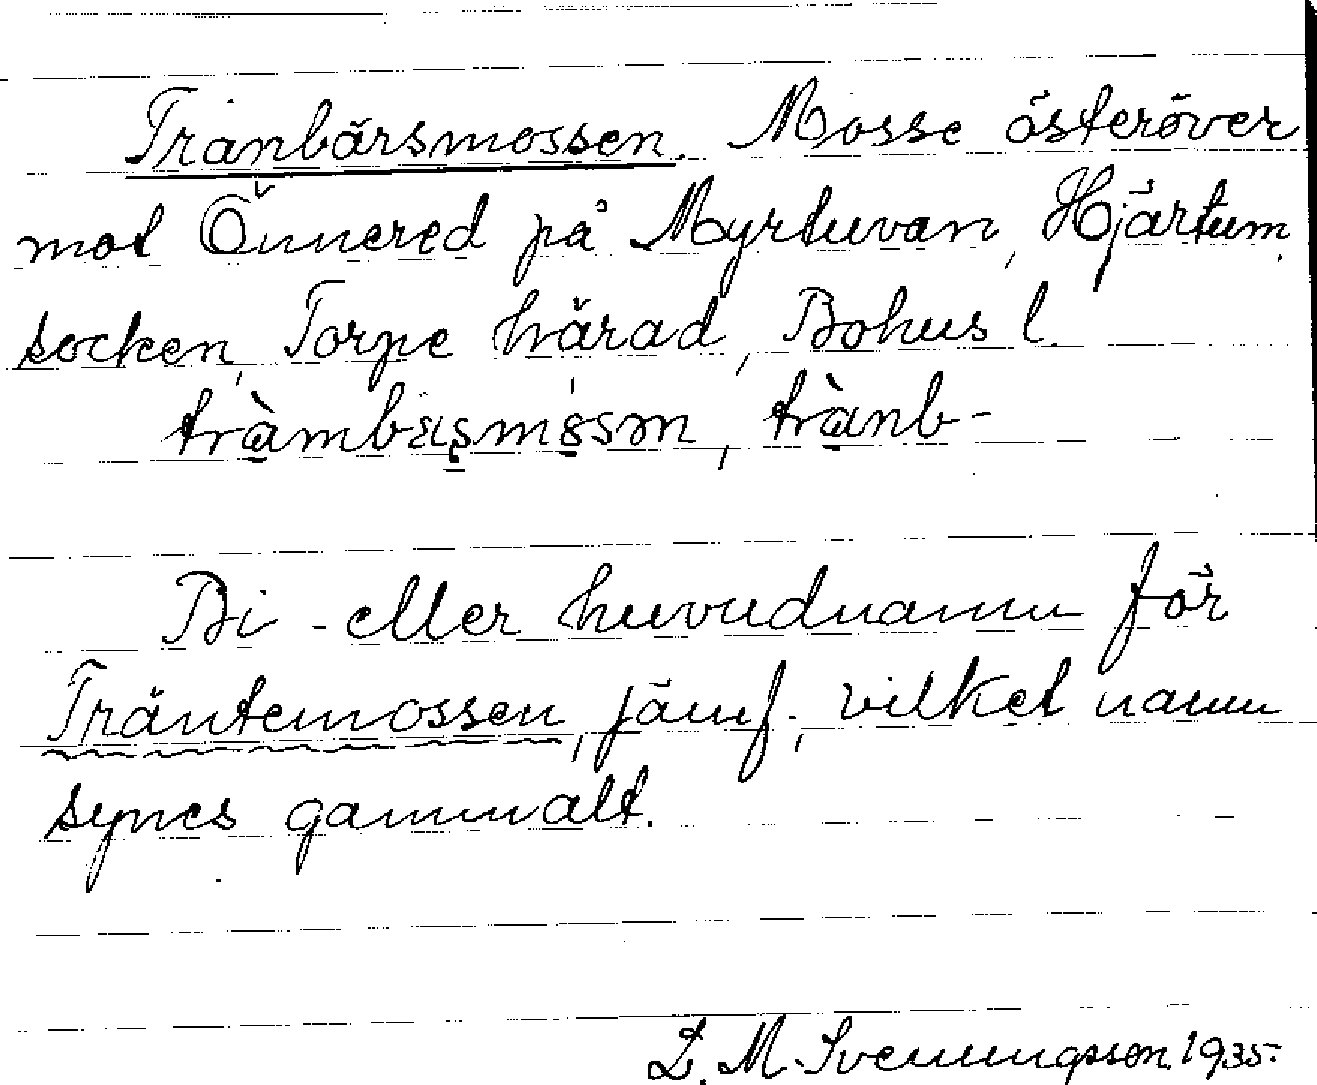 Tranbärsmossen. Mosse österöver
mot Önnered på Myrtuvan, Hjärtum
socken, Torpe härad, Bohus l.
trànb-
Bi- eller huvudnamn för
Träntemossen, jämf., vilket namn
synes gammalt.
L. M. Svenungsson. 1935.